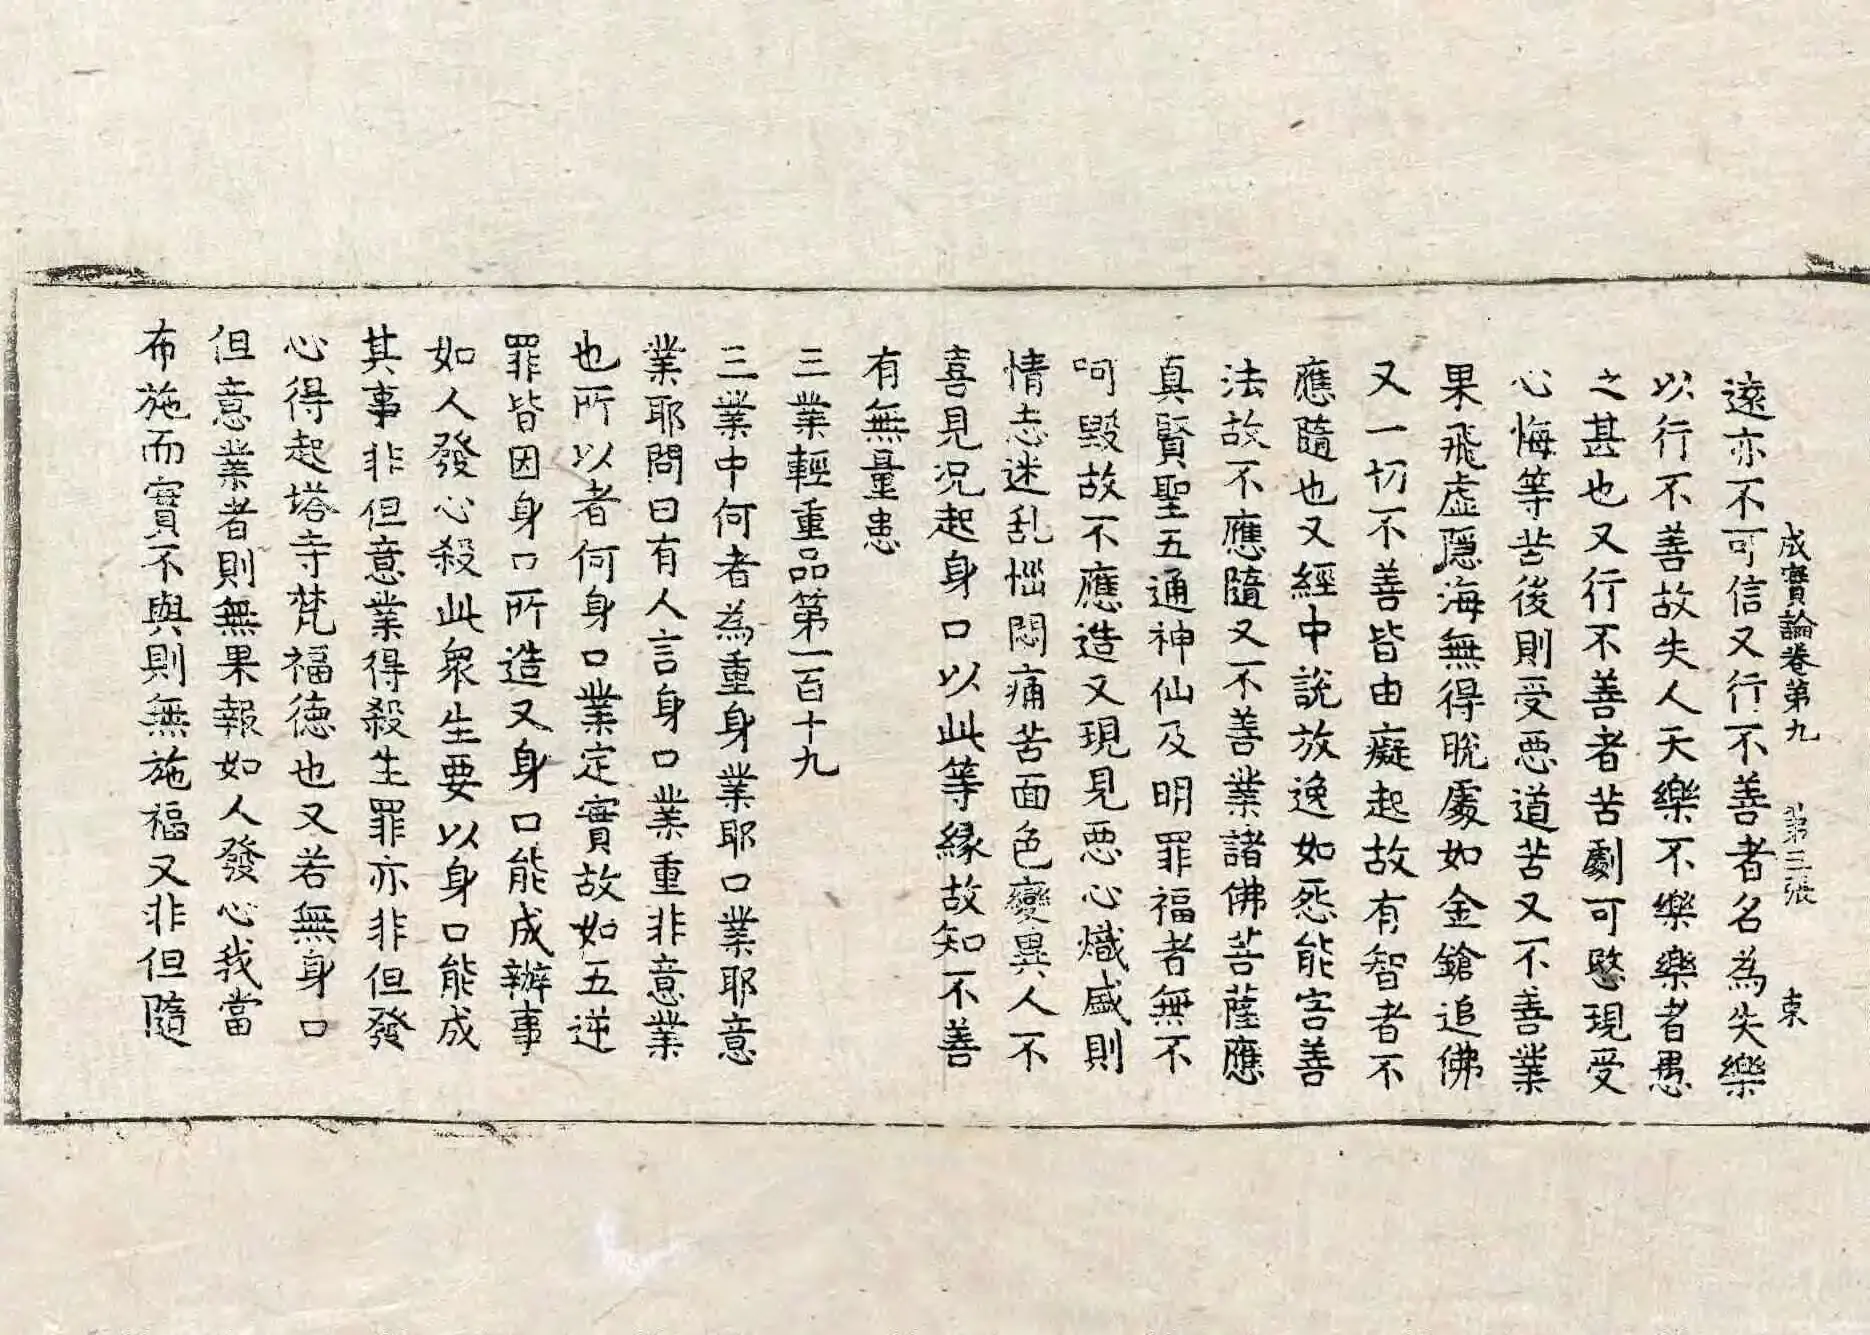 成實論卷第九 第三張 東
遠亦不可信又行不善者名為失樂
以行不善故失人天樂不樂樂者愚
之甚也又行不善者苦劇可愍現受
心悔等苦後則受惡道苦又不善業
果飛虛隱海無得脫處如金鎗追佛
又一切不善皆由癡起故有智者不
應隨也又經中說放逸如怨能害善
法故不應隨又不善業諸佛菩薩應
真賢聖五通神仙及明罪福者無不
呵毀故不應造又現見惡心熾盛則
情志迷乱惱悶痛苦面色變異人不
喜見況起身口以此等緣故知不善
有無量患
三業輕重品第一百十九
三業中何者為重身業耶口業耶意
業耶問曰有人言身口業重非意業
也所以者何身口業定實故如五逆
罪皆因身口所造又身口能成辦事
如人發心殺此眾生要以身口能成
其事非但意業得殺生罪亦非但發
心得起塔寺梵福德也又若無身口
但意業者則無果報如人發心我當
布施而實不與則無施福又非但隨